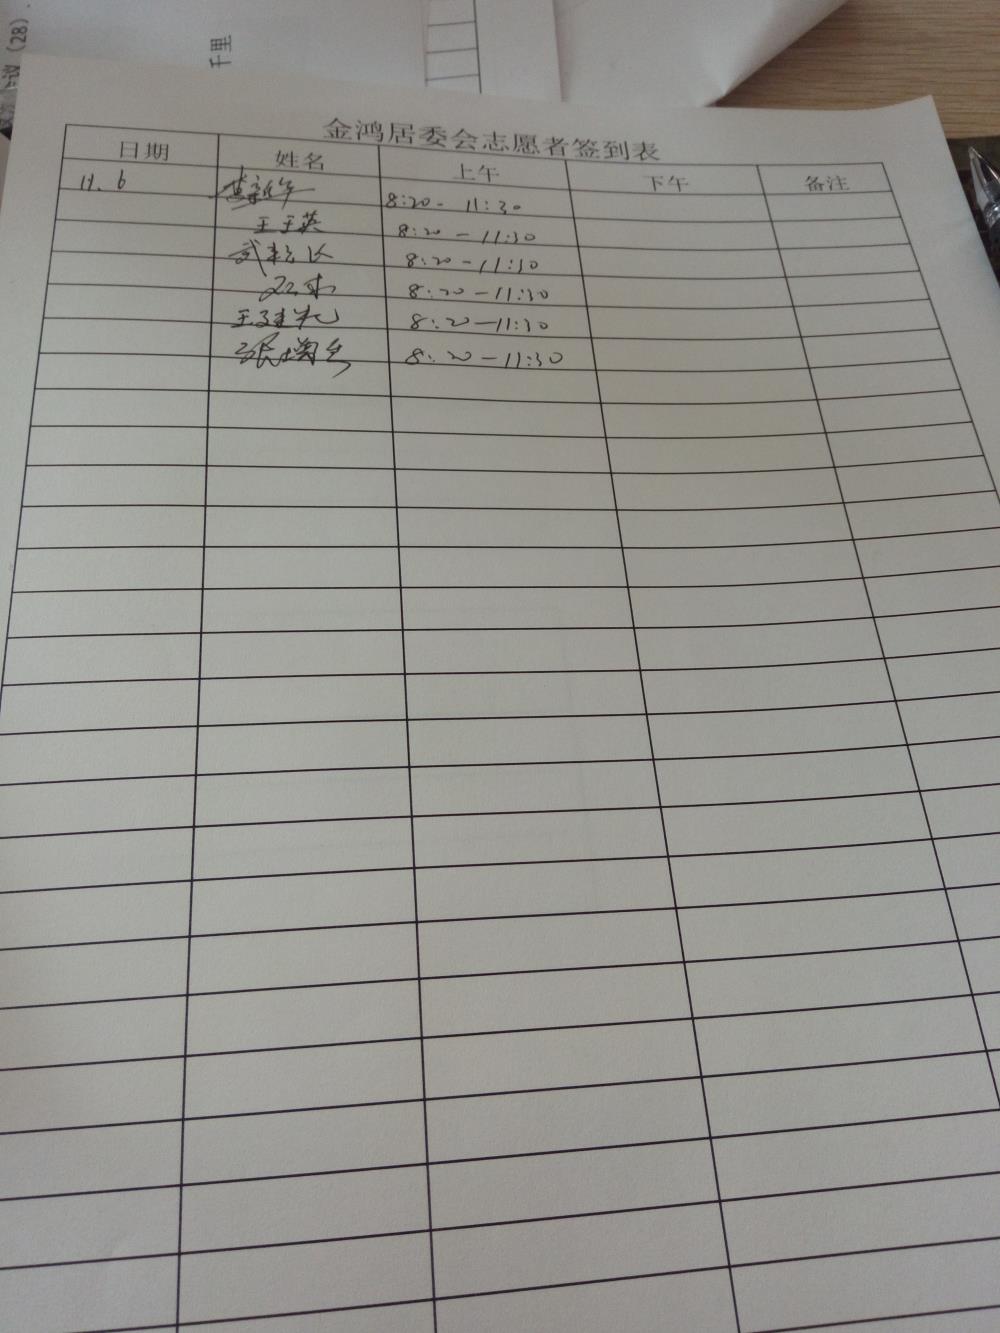 (28)
千里
金鸿居委会志愿者签到表
日期 姓名 上午 下午 备注
11.6 8:20- 11:30
王玉英 8:20-11:30
8:20-11:30
8:20-11:30
8:20-11:30
8:20-11:30